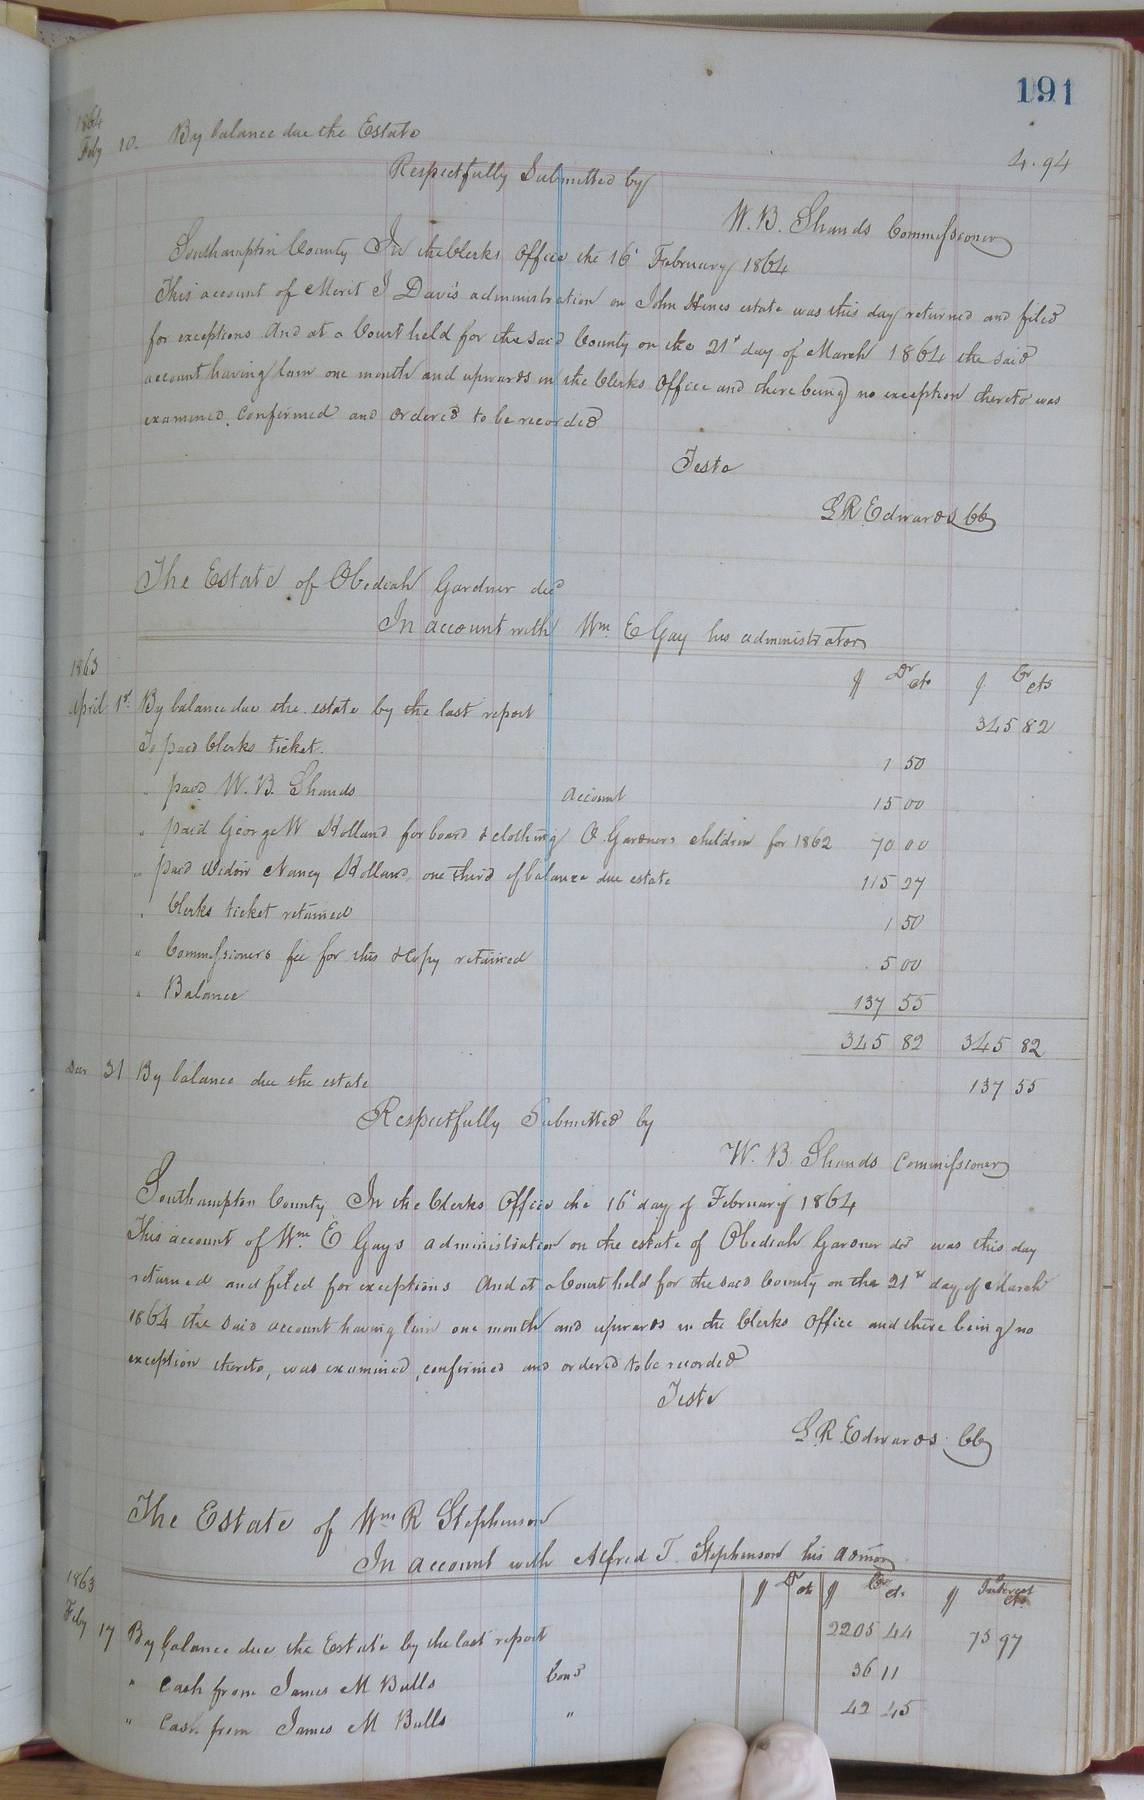 191
1864
Feby 10. By balance due the Estate 4.94
Respectfully Submitted by
W. B. Shands Commissioner
Southampton County In the Clerks Office the 16' February 1864
This account of Merit J Davis administration on John Hines estate was this day returned and filed
for exceptions And at a Court held for the said County on the 21st day of March 1864 the said
account having lain one month and upwards in the Clerks Office and there being no exception thereto was
examined, confirmed and ordered to be recorded
Teste
L R Edwards CC
The Estate of Obediah Gardner decd
In account with Wm E Gay his administrator
1863 $ Dr cts $ Cr cts
April 1st. By balance due the estate by the last report 345 82
To paid Clerks ticket. 1 50
" paid W. B. Shands account 15 00
" paid George W Holland for board & clothing O. Gardners children for 1862 70 00
" paid widow Nancy Holland one third of balance due estate 115 27
" Clerks ticket retained 1 50
" Commissioners fee for this & copy retained 5 00
" Balance 137 55
345 82 345 82
Decr 31 By balance due the estate 137 55
Respectfully Submitted by
W. B. Shands Commissioner
Southampton County In the Clerks Office the 16' day of February 1864
This account of Wm E Gays administration on the estate of Obediah Gardner decd was this day
returned and filed for exceptions And at a Court held for the said County on the 21st day of March
1864 the said account having lain one month and upwards in the Clerks Office and there being no
exception thereto, was examined, confirmed and ordered to be recorded
Teste
L. R. Edwards CC
The Estate of Wm R Stephenson
In account with Alfred T. Stephenson his admor
1863 $ Dr cts $ Cr cts $ Interest cts
Feby 17 By balance due the Estate by the last report 2205 44 75 97
" Cash from James M Bulls Cond 36 11
" Cash from James M Bulls " 42 45